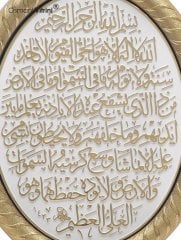 بسم الله الرحمن الرحيم
الله لا إله إلا هو الحي القيوم لا تأخذه
سنة ولا نوم له ما في السموات وما في الأرض
من ذا الذي يشفع عنده إلا بإذنه يعلم ما بين
أيديهم وما خلفهم ولا يحيطون بشيء من
علمه إلا بما شاء وسع كرسيه السموات
والأرض ولا يؤده حفظهما وهو
العلي العظيم